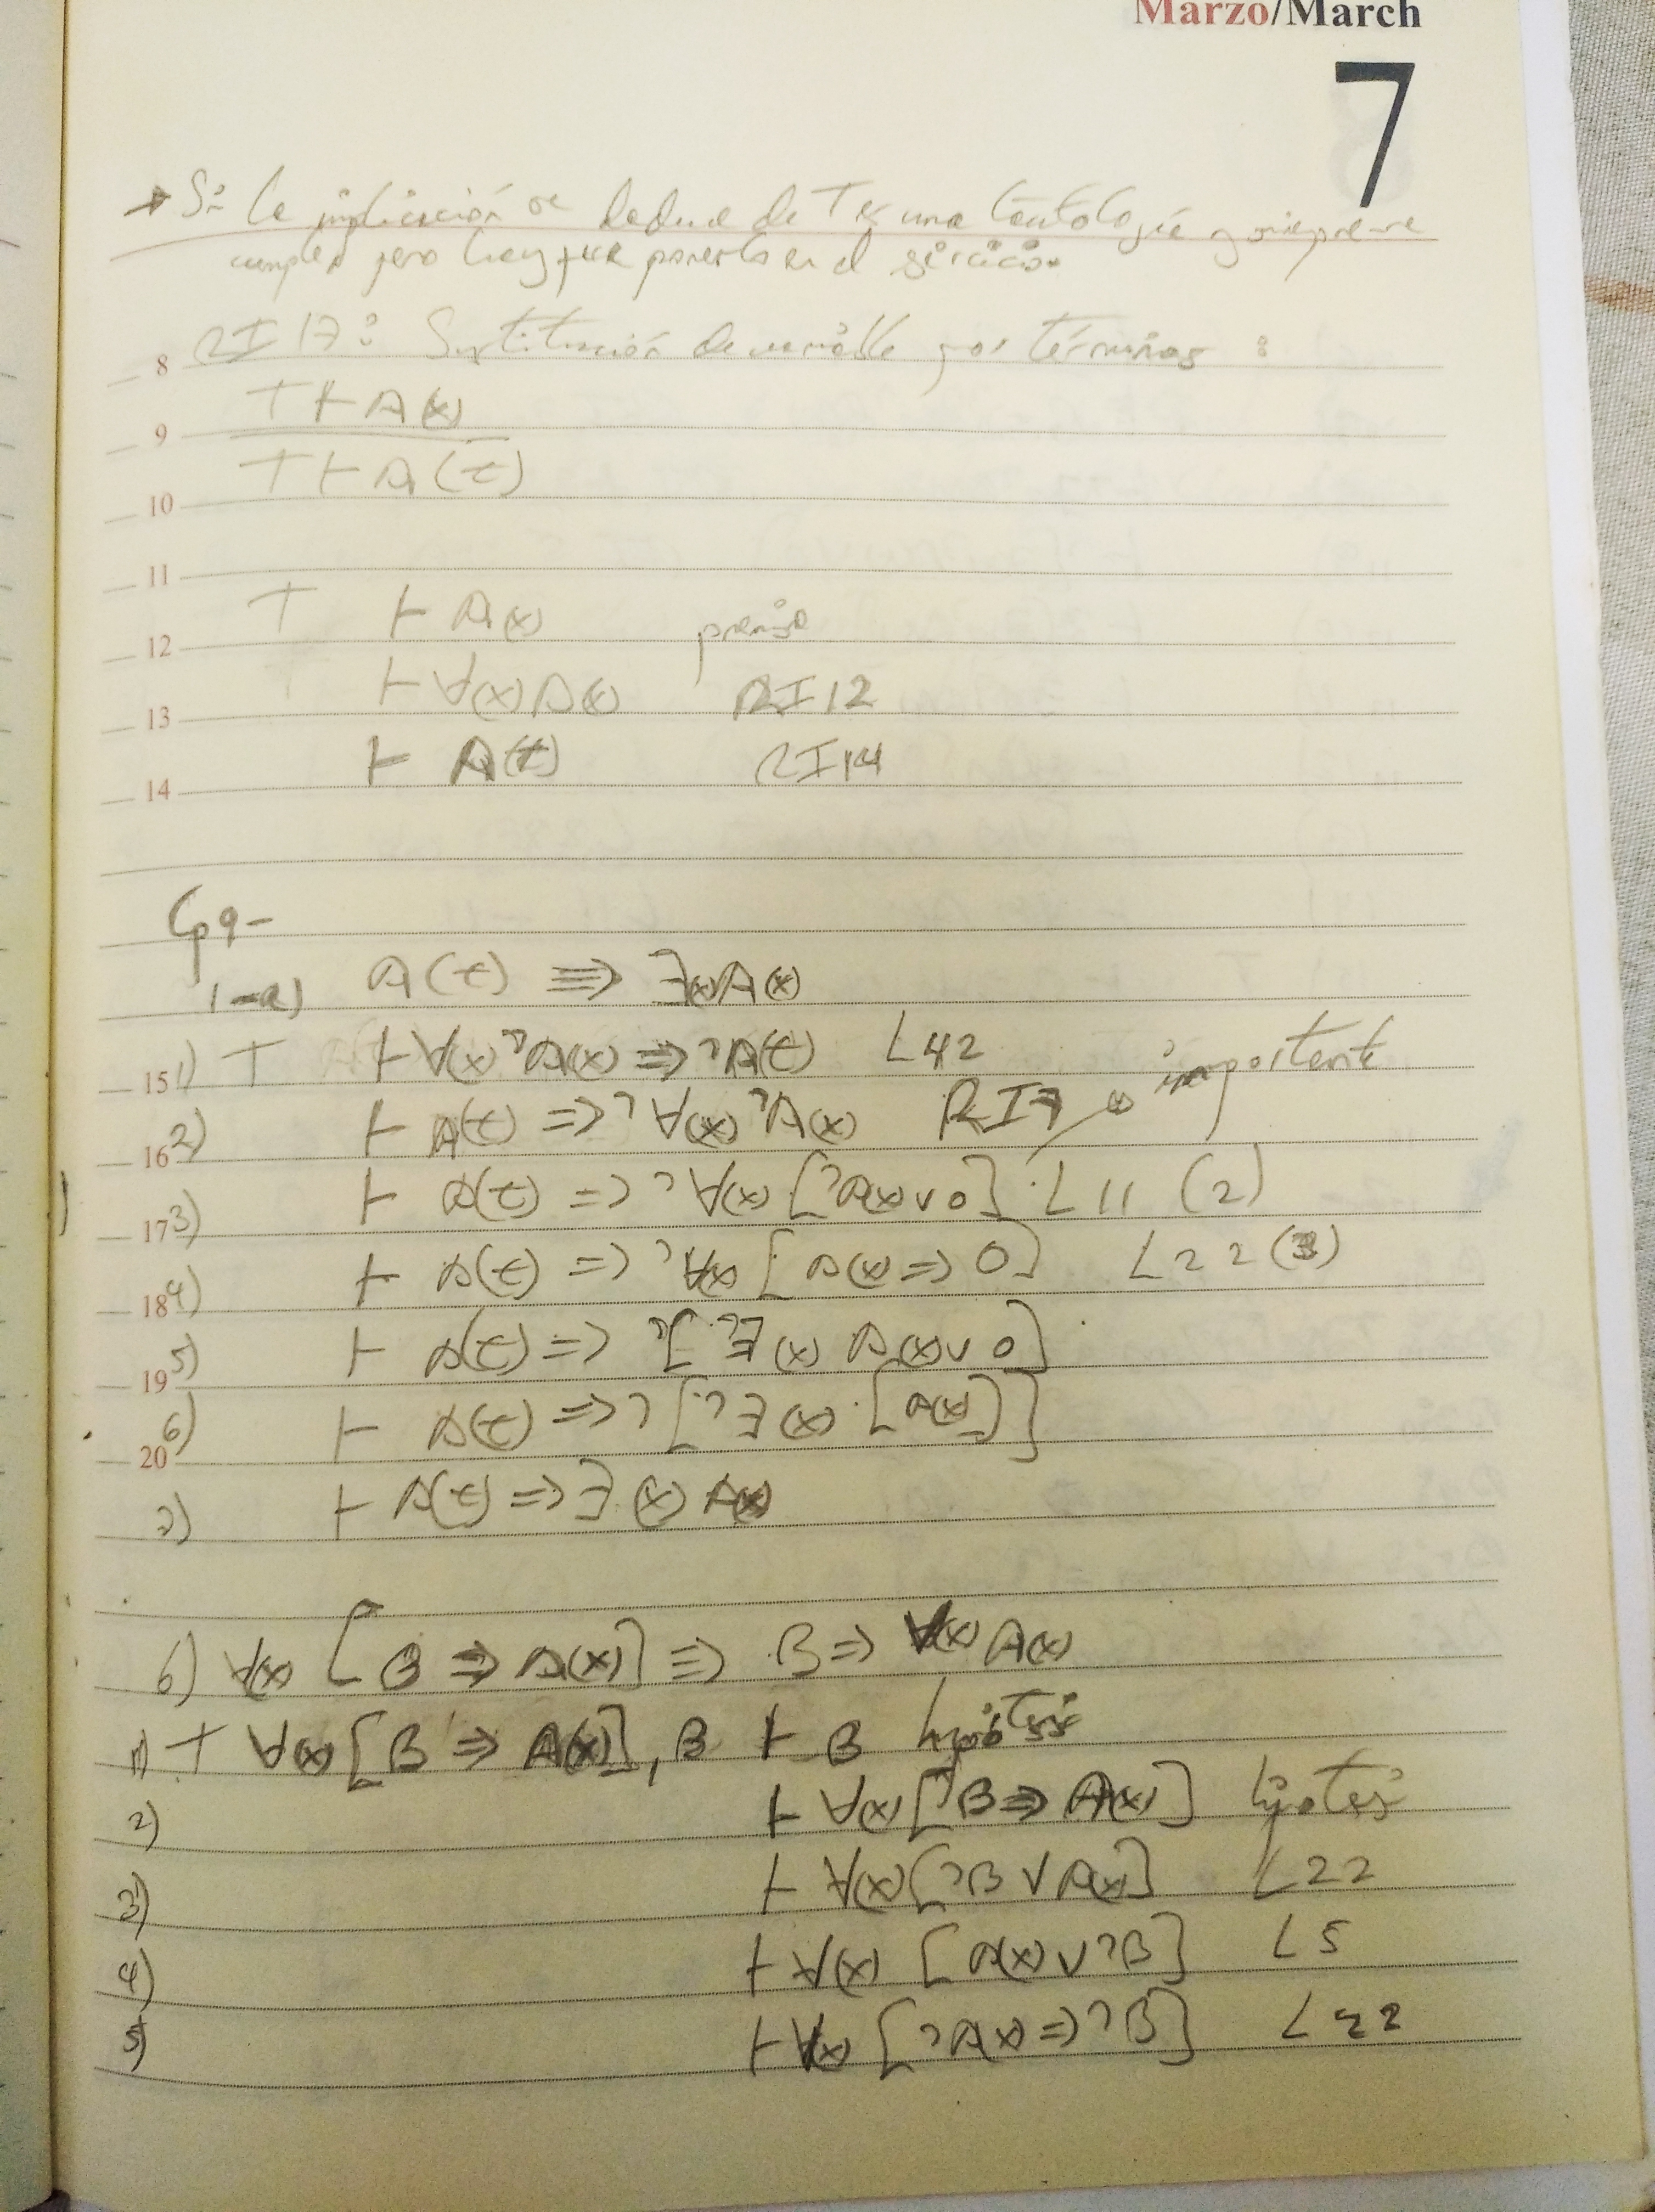 Marzo/March
7
→ Si la implicación se deduce de T es una tautología y siempre se
cumple, pero hay que ponerlo en el ejercicio.
8 RI 17: Sustitución de variable por términos:
T ⊢ A(x)
9
T ⊢ A(t)
10
11
T ⊢ A(x) premisa
12
⊢ ∀(x) A(x) RI12
13
⊢ A(t) RI14
14
Cp9-
1-a) A(t) ⇒ ∃(x)A(x)
15 1) T ⊢ ∀(x)¬A(x) ⇒ ¬A(t) L42
16 2) ⊢ A(t) ⇒ ¬∀(x)¬A(x) RI7 → importante
17 3) ⊢ A(t) ⇒ ¬∀(x) [¬A(x) ∨ 0] L11 (2)
18 4) ⊢ A(t) ⇒ ¬∀(x) [A(x) ⇒ 0] L22 (3)
19 5) ⊢ A(t) ⇒ ¬[¬∃(x) A(x) ∨ 0]
20 6) ⊢ A(t) ⇒ ¬[¬∃(x) [A(x)]]
7) ⊢ A(t) ⇒ ∃(x) A(x)
b) ∀(x) [B ⇒ A(x)] ⇒ B ⇒ ∀(x) A(x)
1) T ∀(x) [B ⇒ A(x)], B ⊢ B hipótesis
2) ⊢ ∀(x) [B ⇒ A(x)] hipótesis
3) ⊢ ∀(x) [¬B ∨ A(x)] L22
4) ⊢ ∀(x) [A(x) ∨ ¬B] L5
5) ⊢ ∀(x) [¬A(x) ⇒ ¬B] L22